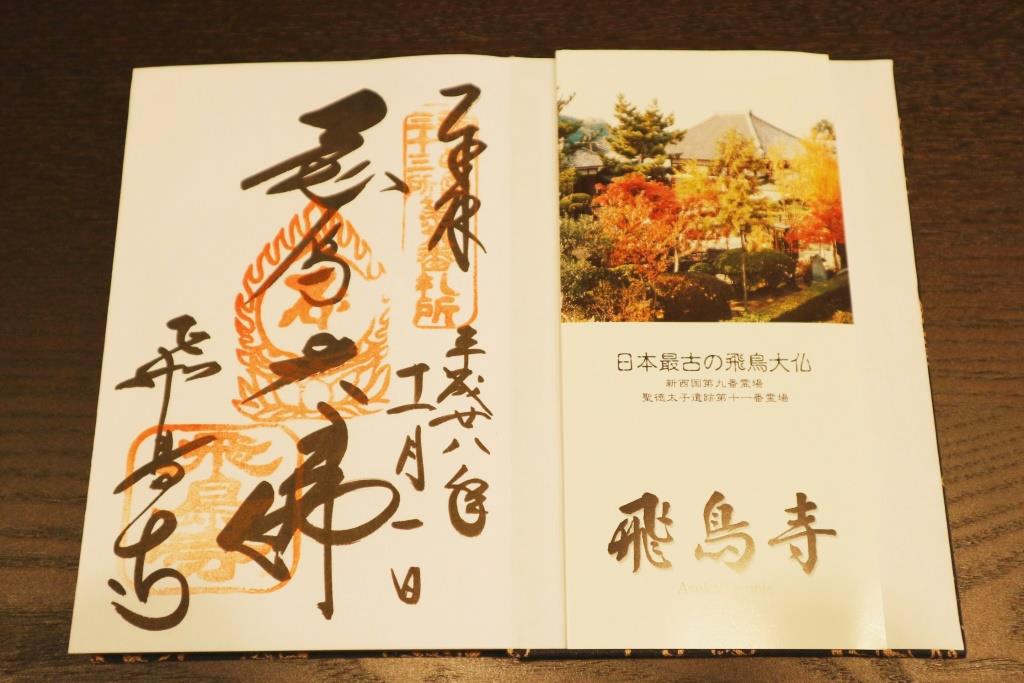 奉拝
平成廿八年
十一月一日
飛鳥大佛
飛鳥寺
飛鳥寺
日本最古の飛鳥大仏
新西国第九番霊場
聖徳太子遺跡第十一番霊場
飛鳥寺
Asuka Temple